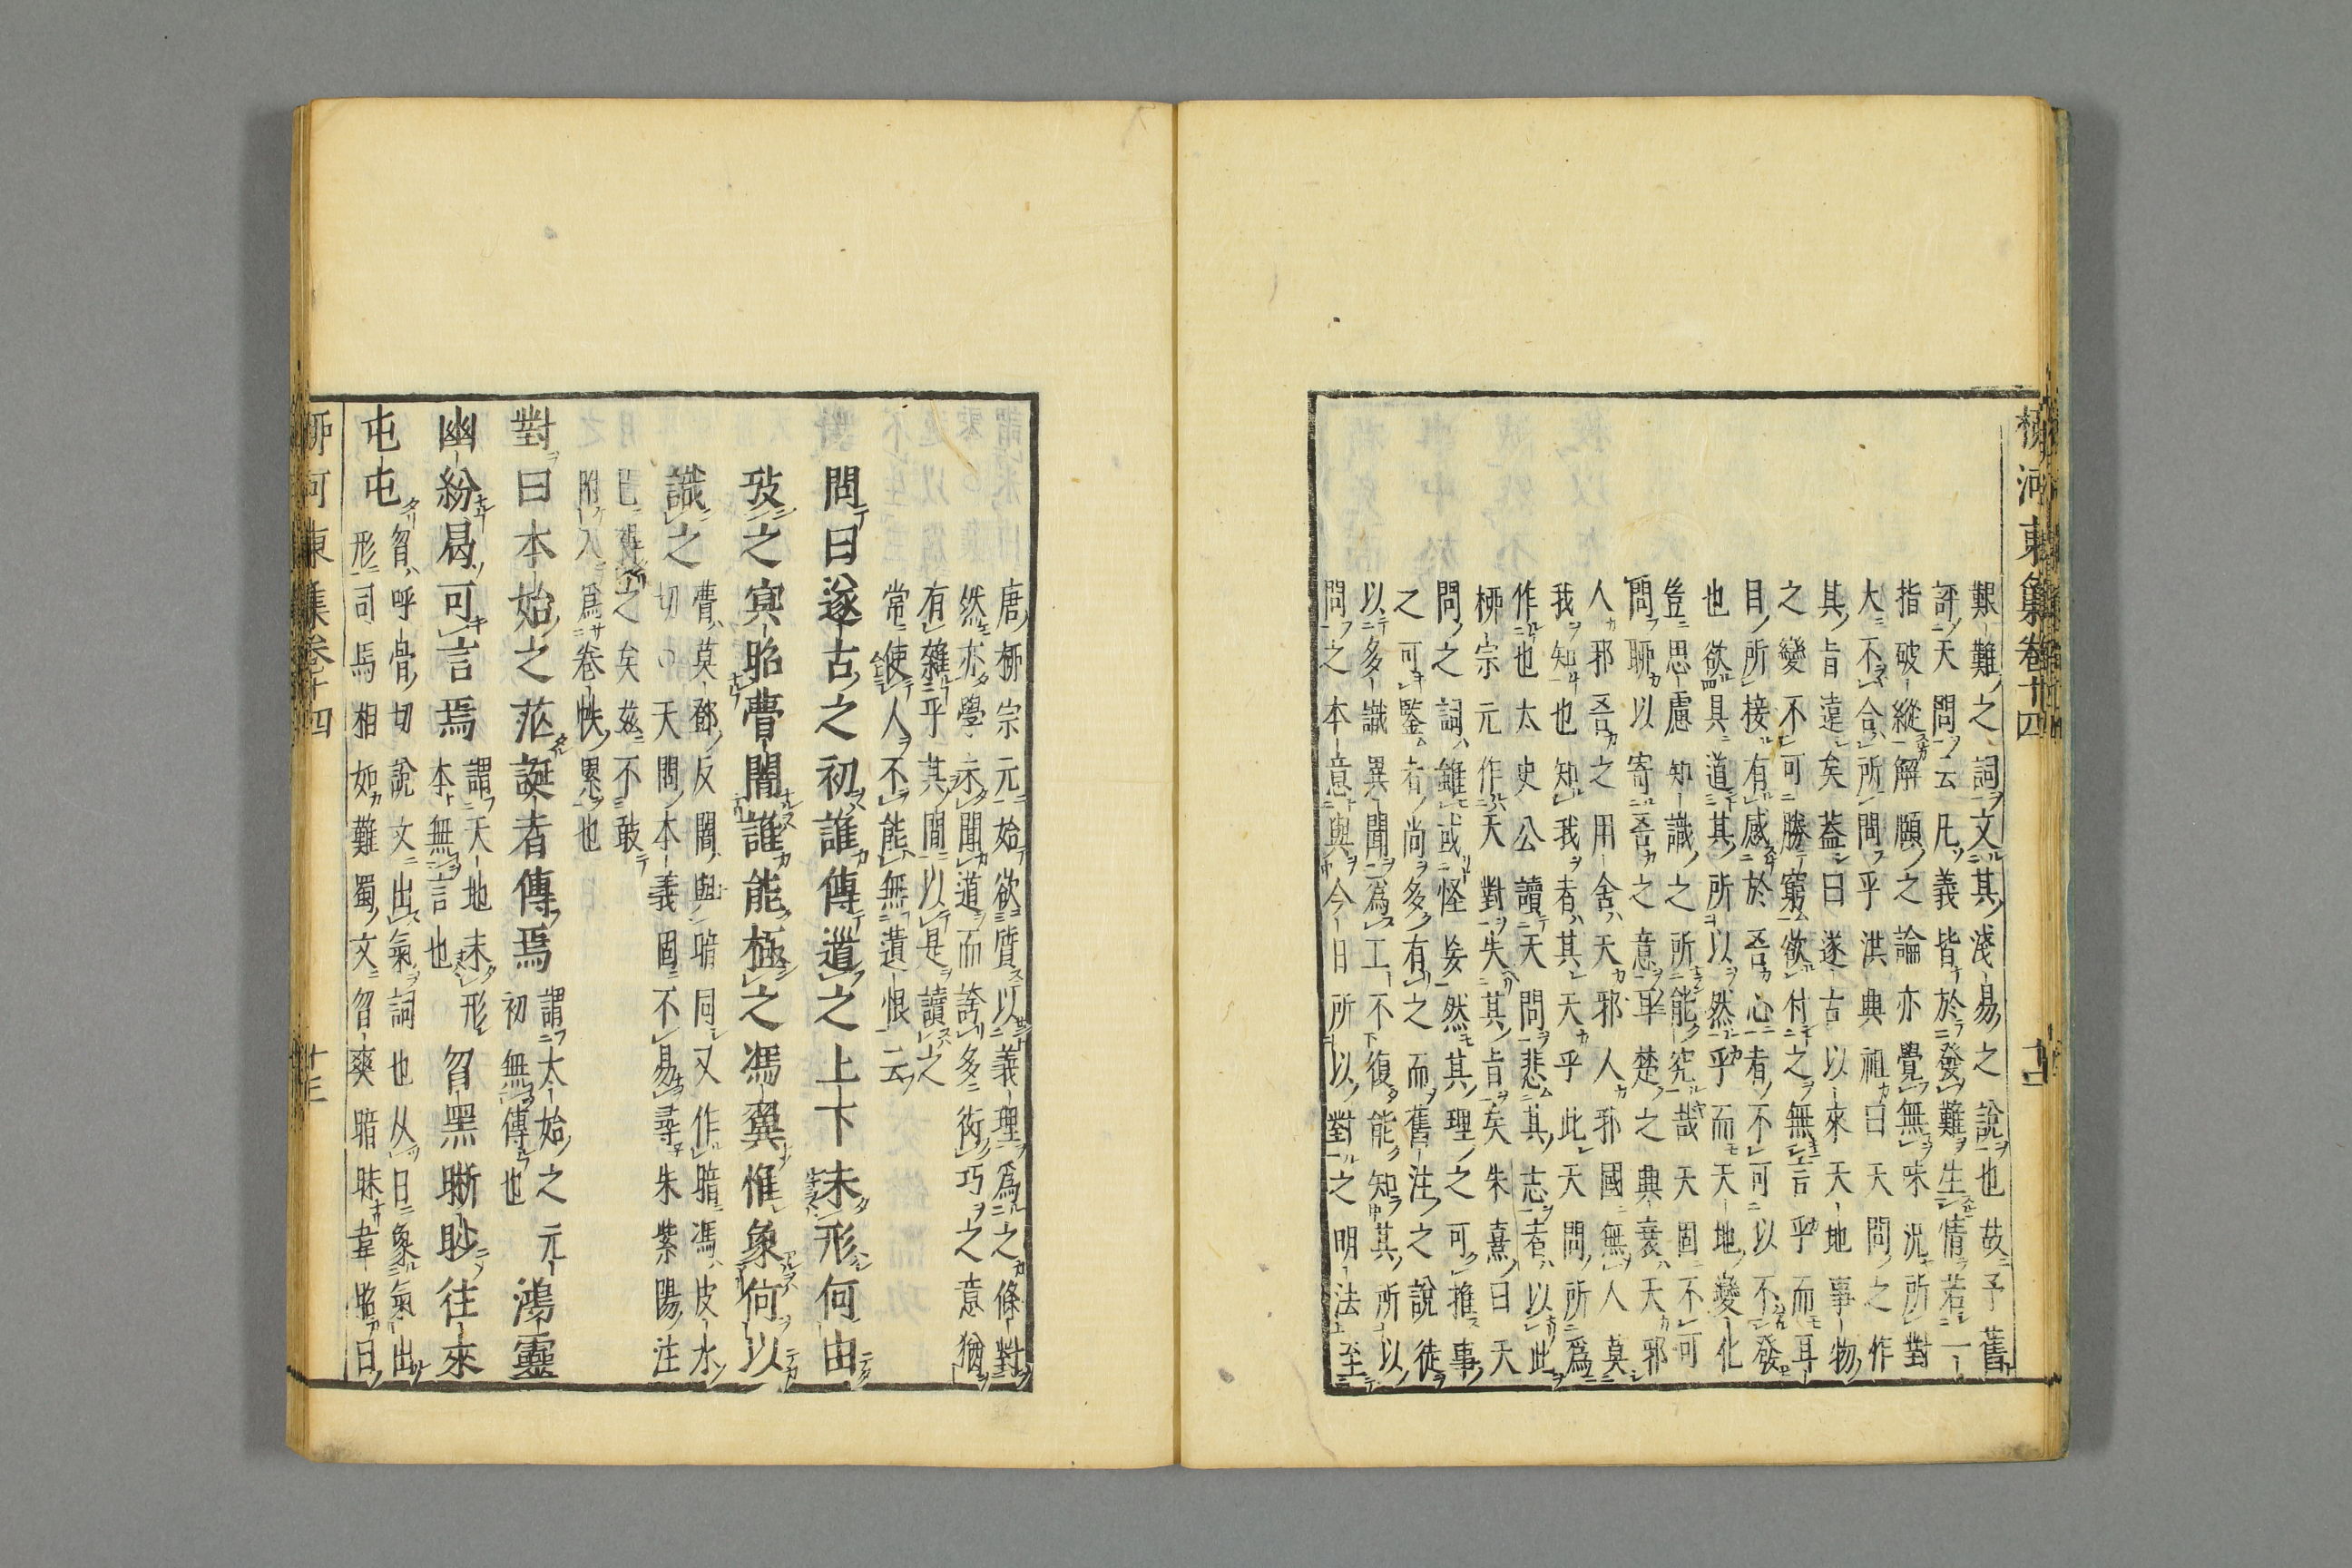 柳河東集卷十四
十二
艱難之詞文其淺易之說也故予舊
評天問云凡義皆於發難生情若一一
指破縱解頤之論亦覺無味況所對
大不合所問乎洪興祖曰天問之作
其旨遠矣蓋曰遂古以來天地事物
之變不可勝窮欲付之無言乎而耳
目所接有感於吾心者不可以不發
也欲具道其所以然乎而天地變化
豈思慮知識之所能究哉天固不可
問聊以寄吾之意耳楚之典衰天邪
人邪吾之用舍天邪人邪國無人莫
我知也知我者其天乎此天問所爲
作也太史公讀天問悲其志者以此
柳宗元作天對失其旨矣朱熹曰天
問之詞雖或怪妄然其理之可推事
之可鑒者尚多有之而舊注之說徒
以多識異聞爲工不復能知其所以
問之本意與今日所以對之明法至
唐柳宗元始欲質以義理爲之條對
然亦學未聞道而誇多衒巧之意猶
有雜乎其間以是讀之
常使人不能無遺恨云
問曰遂古之初誰傳道之上下未形何由
攷之冥昭瞢闇誰能極之馮翼惟象何以
識之
瞢莫鄧反闇與暗同又作瞎馮皮水
切天問本義固不易尋朱紫陽注
已得之矣茲不敢
附入爲卷帙累也
對曰本始之茫誕者傳焉
謂太始之元
初無傳也
鴻靈
幽紛曷可言焉
謂天地未形
本無言也
曶黑晰眇往來
屯屯
曶呼骨切說文出氣詞也从曰象氣出
形司馬相如難蜀文曶爽暗昧韋昭曰
柳河東集卷十四
十三